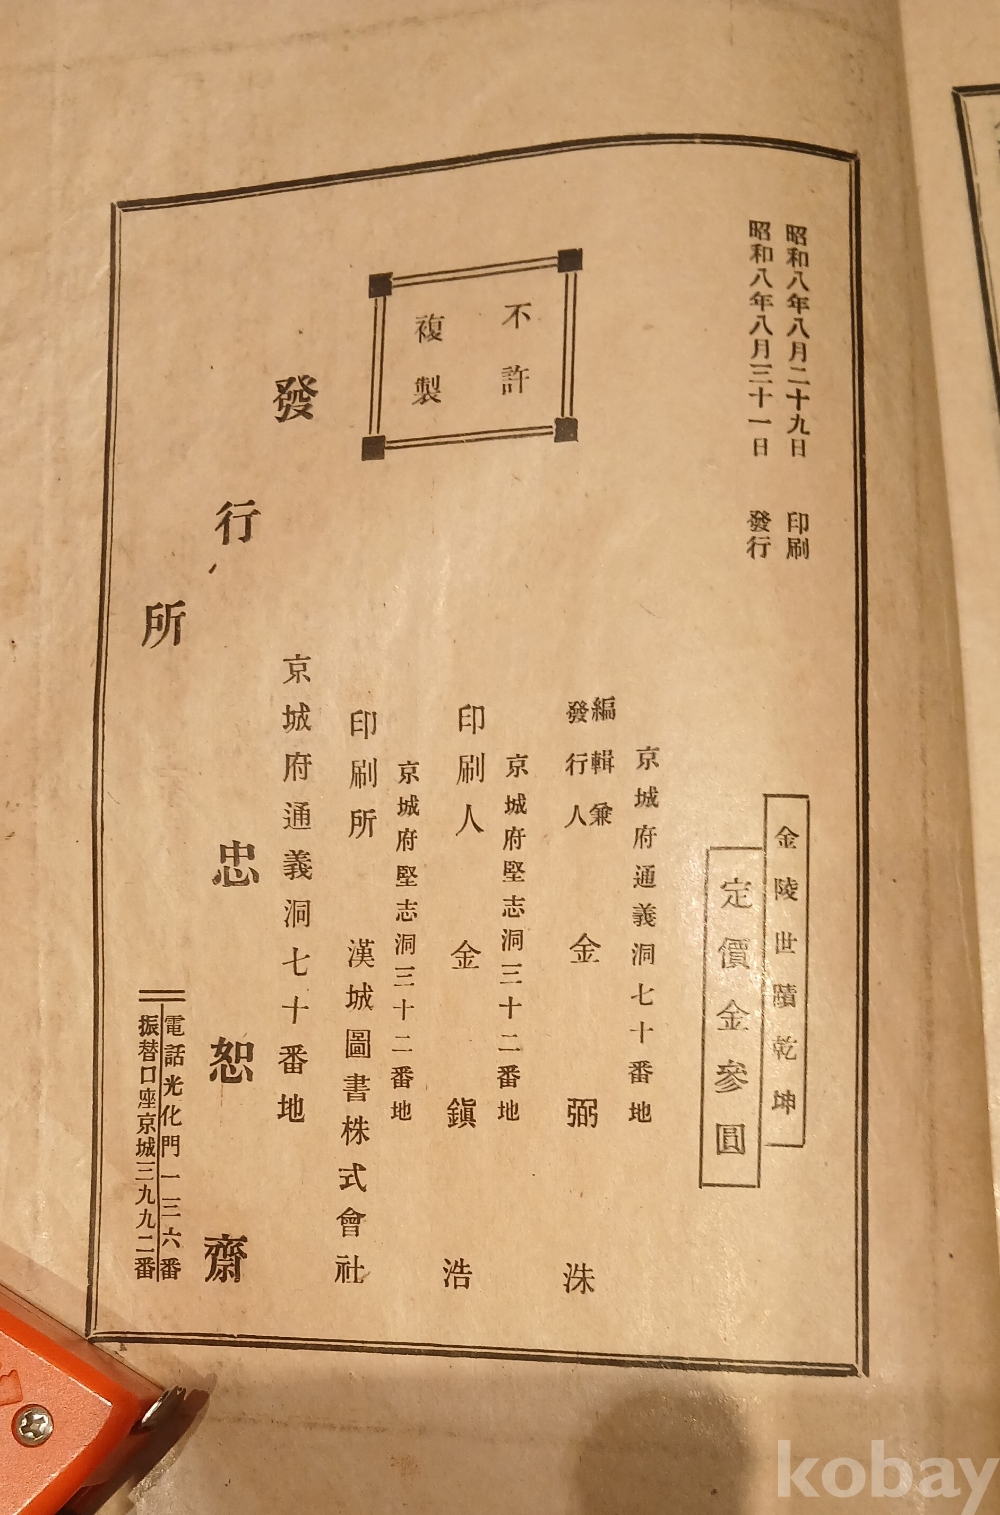 昭和八年八月二十九日 印刷
昭和八年八月三十一日 發行
金陵世蹟乾坤
定價金參圓
不許
複製
京城府通義洞七十番地
編輯兼
發行人 金弼洙
京城府堅志洞三十二番地
印刷人 金鎭浩
京城府堅志洞三十二番地
印刷所 漢城圖書株式會社
京城府通義洞七十番地
發行所 忠恕齋
電話光化門一三六番
振替口座京城三九九二番
kobay